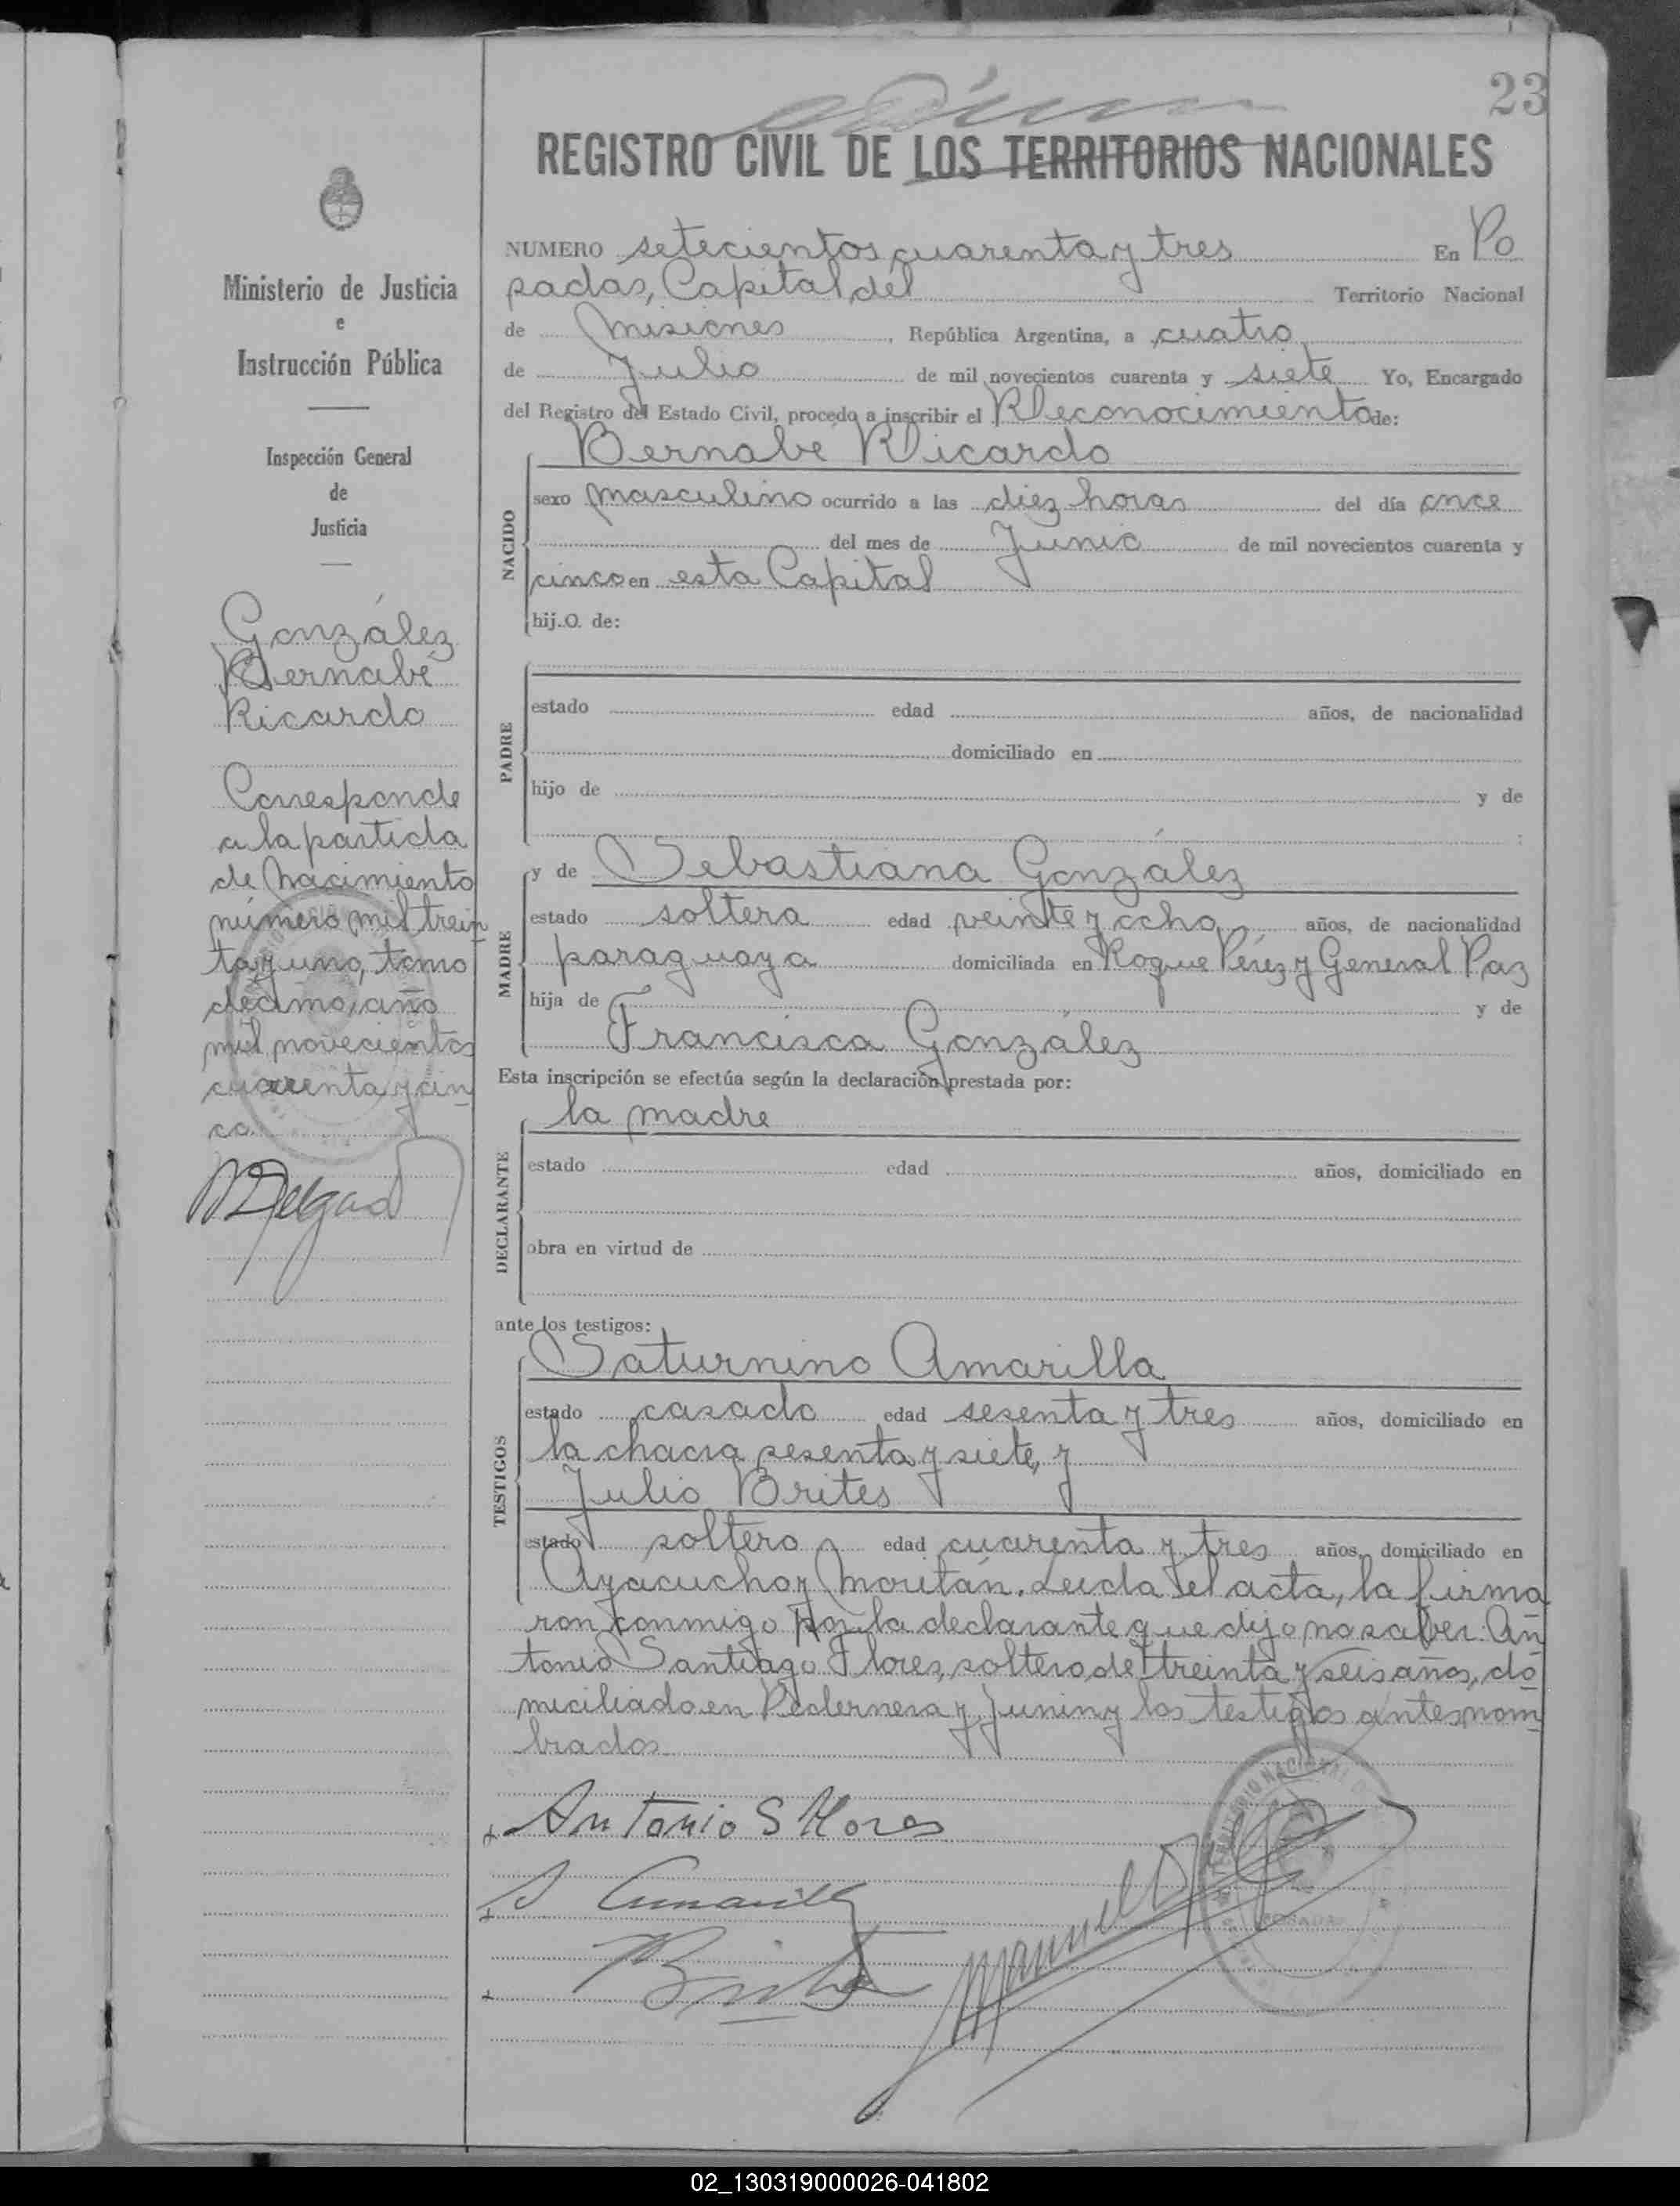 23
REGISTRO CIVIL DE LOS TERRITORIOS NACIONALES
Ministerio de Justicia
e
Instrucción Pública
Inspección General
de
Justicia
González
Bernabé
Ricardo
Corresponde
a la partida
de nacimiento
número mil trein
ta y uno, tomo
décimo, año
mil novecientos
cuarenta y cin
co.
NUMERO setecientos cuarenta y tres En Po
sadas, Capital del Territorio Nacional
de Misiones, República Argentina, a cuatro
de Julio de mil novecientos cuarenta y siete Yo, Encargado
del Registro del Estado Civil, procedo a inscribir el Reconocimiento de:
Bernabé Ricardo
NACIDO
sexo masculino ocurrido a las diez horas del día once
del mes de Junio de mil novecientos cuarenta y
cinco en esta Capital
hij.o. de:
PADRE
estado edad años, de nacionalidad
domiciliado en
hijo de y de
:
MADRE
y de Sebastiana González
estado soltera edad veinte y ocho años, de nacionalidad
paraguaya domiciliada en Roque Pérez y General Paz
hija de y de
Francisca González
Esta inscripción se efectúa según la declaración prestada por:
la madre
DECLARANTE
estado edad años, domiciliado en
obra en virtud de
ante los testigos:
TESTIGOS
Saturnino Amarilla
estado casado edad sesenta y tres años, domiciliado en
la chacra sesenta y siete, y
Julio Brites
estado soltero edad cuarenta y tres años, domiciliado en
Ayacucho y Moritán. Leida el acta, la firma
ron conmigo por la declarante que dijo no saber: An
tonio Santiago Flores, soltero, de treinta y seis años, do
miciliado en Pedernera y Junin y los testigos antes nom
brados.
Antonio S Flores
S Amarilla
Brites
POSADAS
02_130319000026-041802